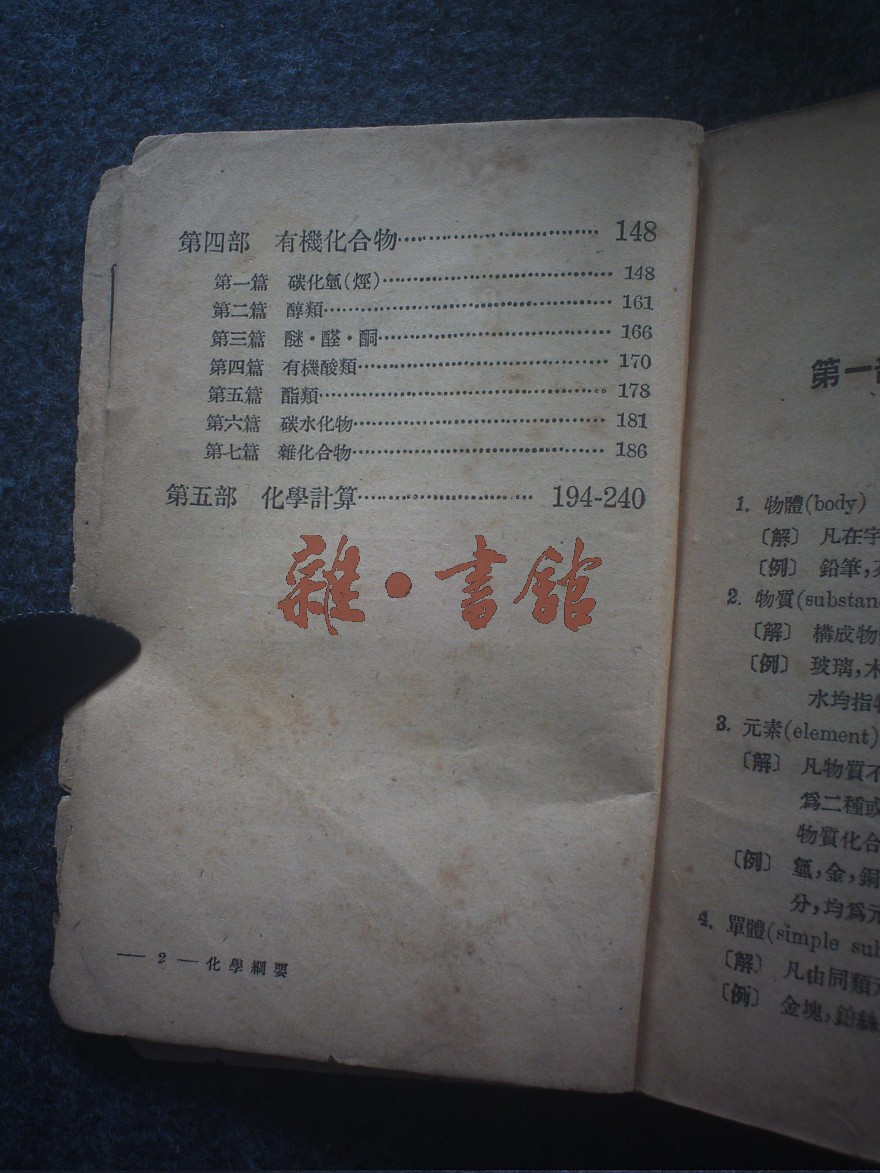 第四部 有機化合物⋯⋯⋯⋯⋯⋯⋯⋯⋯ 148
第一篇 碳化氫(烴)⋯⋯⋯⋯⋯⋯⋯⋯⋯ 148
第二篇 醇類⋯⋯⋯⋯⋯⋯⋯⋯⋯⋯⋯ 161
第三篇 醚・醛・酮⋯⋯⋯⋯⋯⋯⋯⋯⋯ 166
第四篇 有機酸類⋯⋯⋯⋯⋯⋯⋯⋯⋯⋯ 170
第五篇 酯類⋯⋯⋯⋯⋯⋯⋯⋯⋯⋯⋯ 178
第六篇 碳水化物⋯⋯⋯⋯⋯⋯⋯⋯⋯⋯ 181
第七篇 雜化合物⋯⋯⋯⋯⋯⋯⋯⋯⋯⋯ 186
第五部 化學計算⋯⋯⋯⋯⋯⋯⋯ 194-240
雜・書館
— 2 — 化學綱要
第一
1. 物體(body)
〔解〕 凡在宇
〔例〕 鉛筆,
2. 物質(substan
〔解〕 構成物
〔例〕 玻璃,木
水均指物
3. 元素(element)
〔解〕 凡物質不
爲二種或
物質化合
〔例〕 氫,金,銅
分,均爲元
4. 單體(simple sub
〔解〕 凡由同類元
〔例〕 金塊,鉑絲